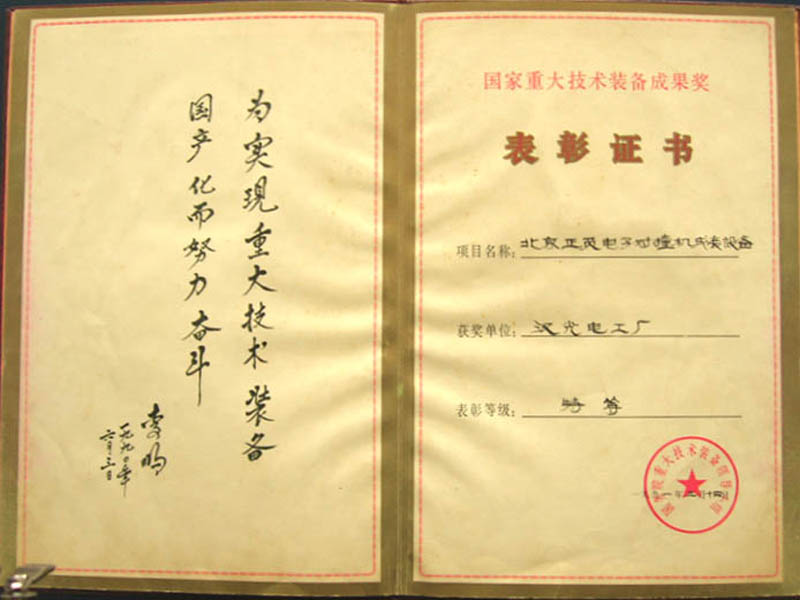 为实现重大技术装备
国产化而努力奋斗
一九九〇年
六月三日
国家重大技术装备成果奖
表彰证书
项目名称：北京正负电子对撞机成套设备
获奖单位：汉光电工厂
表彰等级：特等
国务院重大技术装备领导小组